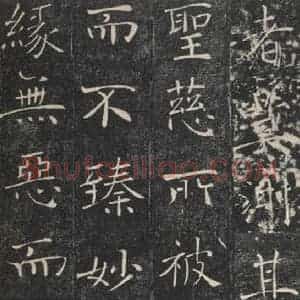 者莫測其
聖慈所被
而不臻妙
緣無惡而
Shufaziliao.COM